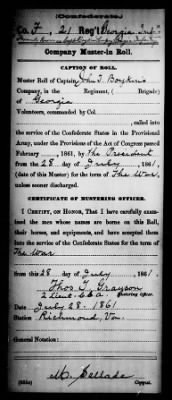 (Confederate.)
Co. F, 21 Reg't Georgia Inf.
Company Muster-in Roll.
CAPTION OF ROLL.
Muster Roll of Captain John T. Boykin's
Company, in the Regiment, ( Brigade)
of Georgia
Volunteers, commanded by Col.
, called into
the service of the Confederate States in the Provisional
Army, under the Provisions of the Act of Congress passed
February , 1861, by The President
from the 28 day of July , 1861,
(date of this Muster) for the term of The War,
unless sooner discharged.
CERTIFICATE OF MUSTERING OFFICER.
I CERTIFY, ON HONOR, That I have carefully exam-
ined the men whose names are borne on this Roll,
their horses, and equipments, and have accepted them
into the service of the Confederate States for the term of
The War
from this 28 day of July , 1861.
Thos T. Grayson
2 Lieut. C.S.A. Mustering Officer.
Date July 28. 1861
Station Richmond, Va.
General Notation:
(642c) Copyist.